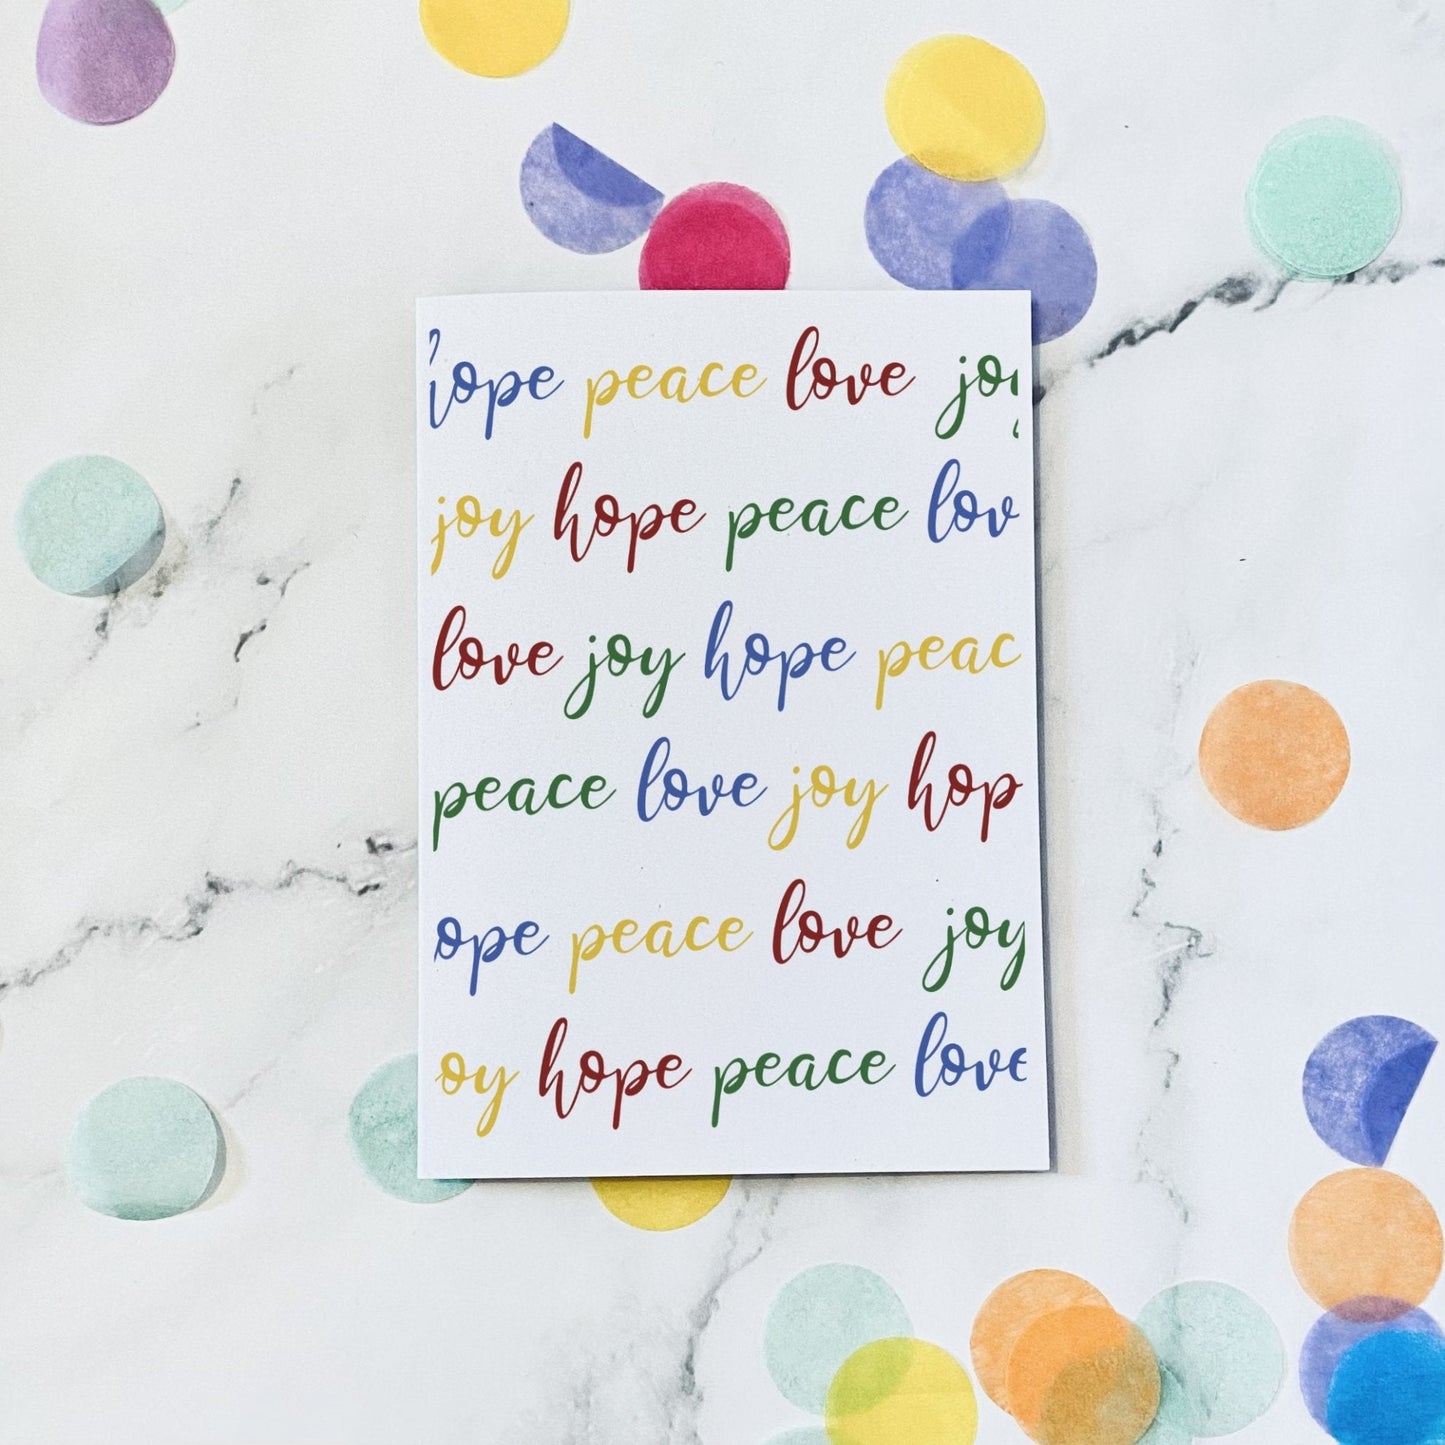 hope peace love joy
joy hope peace lov
love joy hope peac
peace love joy hop
ope peace love joy
oy hope peace love